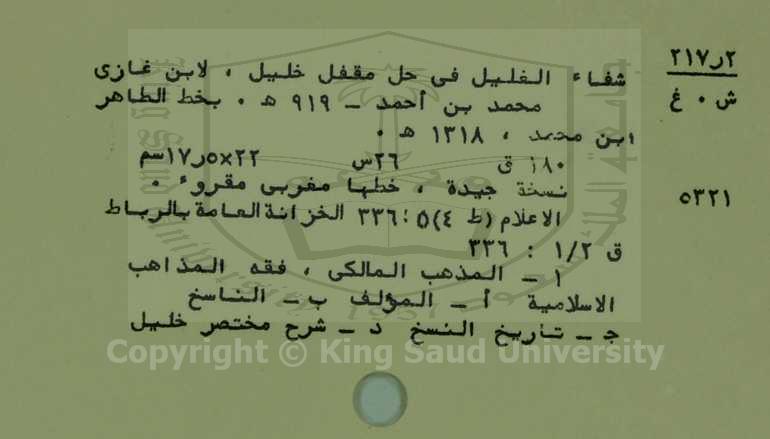 ٢ر٢١٧
ش٠غ
شفاء الغليل فى حل مقفل خليل ، لابن غازى
محمد بن أحمد ــ ٩١٩ هـ ٠ بخط الطاهر
ابن محمد ، ١٣١٨ هـ ٠
١٨٠ ق ٢٦س ٢٢×٥ر١٧سم
٥٣٢١
نسخة جيدة ، خطها مغربى مقروء ٠
الاعلام (ط ٤) ٥ : ٣٣٦ الخزانة العامة بالرباط
ق ١/٢ : ٣٣٦
١ ــ المذهب المالكى ، فقه المذاهب
الاسلامية أ ــ المؤلف ب ــ الناسخ
جـ ــ تاريخ النسخ د ــ شرح مختصر خليل
Copyright © King Saud University